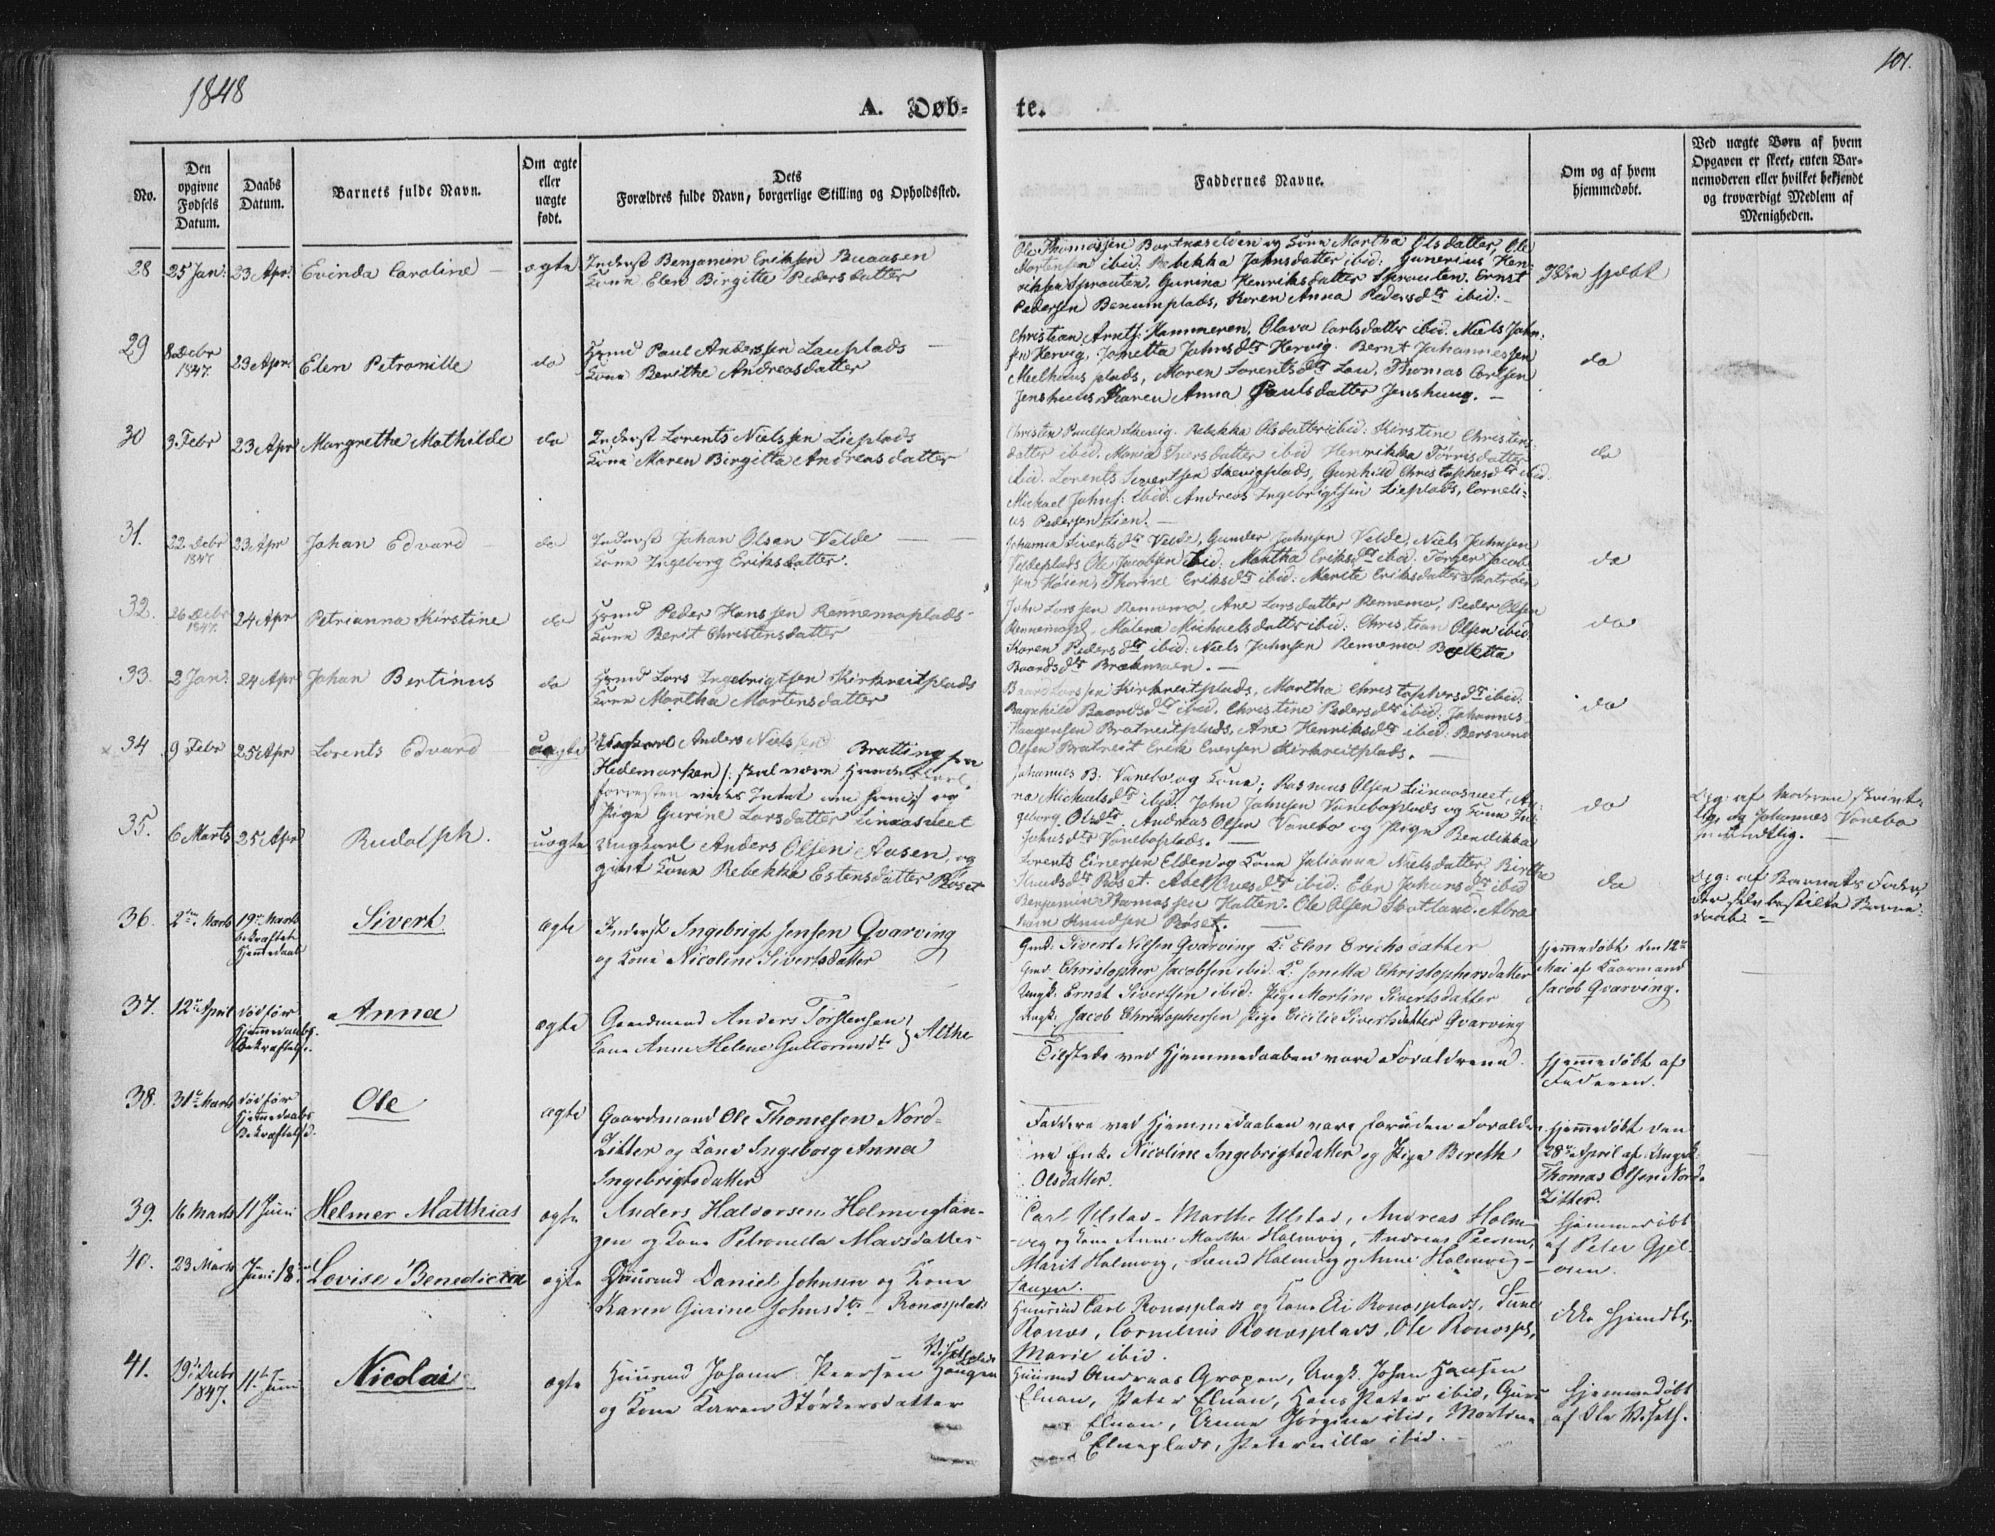 1848
101.
A. Døb-
te.
No.
Den opgivne Fødsels Datum.
Daabs Datum.
Barnets fulde Navn.
Om ægte eller uægte født.
Dets
Forældres fulde Navn, borgerlige Stilling og Opholdssted.
Faddernes Navne.
Om og af hvem hjemmedøbt.
Ved uægte Børn af hvem
Opgaven er skeet, enten Bar-
nemoderen eller hvilket bekjendt
og troværdigt Medlem af
Menigheden.
28 25 Jan: 23 Apr: Evinda Caroline ægte Inderst Benjamin Eriksen Buaasen
Kone Elen Birgitte Pedersdatter
Ole Thomassen Bortnaselden og Kone Martha Olsdatter, Ole
Mortensen ibid: Rebekka Johnsdatter ibid: Gunerius Hen-
riksen Sprouten, Gurina Henriksdatter Sprouten. Ernst
Pedersen Benumplads, Karen Anna Pedersdtr ibid:
29 8 Debr 1847. 23 Apr. Elen Petronille do Hmd Paul Anderssen Lauplads
Kone Berithe Andreasdatter
Christian Arnts: Hammeren, Olava Carlsdatter ibid. Niels John-
sen Hervig, Jonetta Johnsdtr Hervig. Bernt Johannessen
Melhuusplads, Maren Lorentsdtr Lau, Thomas Carlsen
Jenshuus, Karen Anna Paulsdatter Jenshuug.
do
30 3 Febr 23 Apr Margrethe Mathilde do Inderst Lorents Nielssen Lieplads
Kone Maren Birgitta Andreasdatter
Christen Paulsen Skevig. Rebekka Olsdatter ibid: Kirstine Christens
datter ibid. Maria Iversdatter ibid Henrikka Tørrisdatter
ibid. Lorents Sivertsen Skevigplads, Gunhild Christophersdtr ibid.
Michael Johns: ibid: Andreas Ingebrigtsen Lieplads, Corneli-
us Pedersen Lien.
do
31. 22 Debr 1847. 23 Apr Johan Edvard do Inderst Johan Olsen Velde
Kone Ingeborg Eriksdatter.
Johanna Sivertsdtr Velde, Gunder Johnsen Velde, Niels Johnsen
Veldeplads Ole Jacobsen ibid: Martha Eriksdtr ibid. Torger Jacob-
sen Høien, Thorine Eriksdtr ibid: Marite Eriksdatter
do
32. 26 Debr 1847. 24 Apr Petrianna Kirstine do Hmd Peder Hanssen Rennemoplads
Kone Berit Christensdatter
John Larssen Rennemo, Ane Larsdatter Rennemo, Peder Olsen
Rennemopl, Malena Michaelsdatter ibid: Christian Olsen ibid
Karen Pedersdtr ibid: Niels Johnsen Rennemo
Baardsdtr Brækmoen.
do
33. 2 Jan: 24 Apr Johan Bertinus do Hmd Lars Ingebrigtsen Kirkreitplads
Kone Martha Mortensdatter
Baard Larssen Kirkreitplads, Martha Christophersdtr ibid.
Ragnhild Baardsdtr ibid. Christine Pedersdtr ibid: Johannes
Haagensen Bratreitplads, Ane Henriksdtr ibid:
Olsen Bratreit Erik Evensen Kirkreitplads.
do
34 9 Febr 25 Apr Lorents Edvard uægte Ungkarl Anders Nielssen Bratting fra
Hedemarken /: skal være Handelskarl,
forresten vides Intet om ham :/ og
Pige Gurine Larsdatter Linaasneet
Johannes B: Vanebo og Kone; Rasmus Olsen Liinaasneet,
na Michaelsdtr ibid: John Johnsen Vaneboplads og Kone In-
geborg Olsdtr. Andreas Olsen Vanebo og Pige Bendikka
Johnsdtr Vaneboplads.
do
Opg: af Moderen skrift-
lig og Johannes Vanebo
mundtlig.
35. 6 Marts 25 Apr Rudolph. uægte Ungkarl Anders Olsen Aasen, og
givt Kone Rebekka Estensdatter Røset
Lorents Einersen Elden og Kone Julianna Nielsdatter Birthe
Knudsdtr Røset. Abel Ovesdtr ibid: Elen Johansdtr ibid
Benjamin Thomassen Hatten. Ole Olsen Skotland. Abra
ham Knudsen Røset.
do
Opg: af Barnets Fader,
der selv bestilte Barne-
daab.
36. 2den Marts 19de Marts bekræftet Hjemmedaab Sivert ægte Inderst Ingebrigt Jensen Qvarving
og Kone Nicoline Sivertsdatter
Gmd: Sivert Nilsen Qvarving K: Elen Erichsdatter
Gmd. Christopher Jacobsen ibid. K: Jonetta Christophersdatter
Ungk: Ernst Sivertsen ibid: Pige Martine Sivertsdatter
Ungk: Jacob Christophersen Pige Cicilie Sivertsdatter Qvarving
hjemmedøbt den 12te
Mai af Gaarmand
Jacob Qvarving.
37. 12te April død før Hjemmedaabs Bekræftelse. Anna ægte Gaardmand Anders Torstensen
Kone Anne Helene Guttormsdtr } Asthe
Tilstede ved Hjemmedaaben vare Forældrene.
Hjemmedøbt af
Faderen.
38. 31te Marts død før Hjemmedaabs Bekræftelse. Ole ægte Gaardmand Ole Thomesen Nord-
Zitter og Kone Ingeborg Anna
Ingebrigtsdatter
Faddere ved Hjemmedaaben vare foruden Forældre-
ne Enke Nicoline Ingebrigtsdatter og Pige Bereth
Olsdatter.
Hjemmedøbt den
28de April af Ungk:
Thomas Olsen Nord-
Zitter.
39. 16 Marts 11 Juni Helmer Matthias ægte Anders Haldorsen Holmvigtan-
gen og Kone Petronella Madsdatter
Carl Ulstad - Marthe Ulstad, Andreas Holm-
vig og Kone Anne Marthe Holmvig, Andreas Peersen,
Marit Holmvig, Holmvig og Anne Holmvig-
tangen.
hjemmedøbt
af Peter Gjel-
osen.
40. 23 Marts Juni 18 Lovise Benedicta ægte Huusmd Daniel Johnsen og Kone
Karen Gurine Johnsdtr Ronæsplads
Huusmd Carl Ronæsplads og Kone Eli Ronæsplads,
Ronæs, Cornelius Ronæsplads, Ole Ronæspl,
Marie ibid.
ikke hjemdbt.
41. 19de Debr 1847. 11te Juni Nicolai ægte Huusmd Johann Peersen Haugen
og Kone Karen Størkersdatter
Huusmd Andreas Gropen, Ungk. Johan Hansen
Elnan, Peter Elnan, Hans Peter ibid, Guru
Elnan, Anne Jørgine ibid, Martine
Elneplads, Peternille ibid.
Hjemmedøbt
af Ole Viseth.